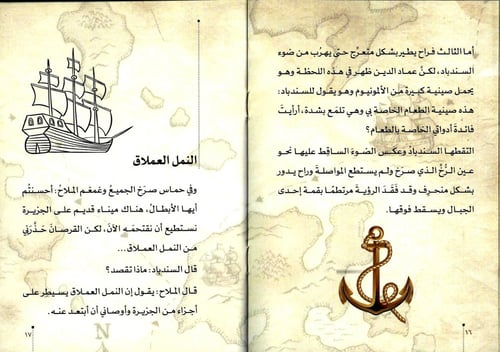 أما الثالث فراح يطير بشكل متعرّج حتى يهرُب من ضوء
السندباد، لكنَّ عماد الدين ظهر في هذه اللحظة وهو
يحمل صينية كبيرة من الألمونيوم وهو يقول للسندباد:
هذه صينية الطعام الخاصة بي وهي تلمَع بشدة، أرأيتَ
فائدةَ أدواتي الخاصة بالطعام؟
التقطها السندبادُ وعكَس الضوءَ الساقِط عليها نحو
عين الرُّخِّ الذي صرَخ ولم يستطع المواصلةَ وراح يدور
بشكل منحرِف وقد فَقَدَ الرؤيةَ مرتطمًا بقمة إحدى
الجبال ويسقط فوقها.
١٦
النمل العملاق
وفي حماس صرَخ الجميعُ وغمغَم الملاحُ: أحسنتُم
أيها الأبطالُ، هناك ميناء قديم على الجزيرة
نستطيع أن نقتحمَه الآنَ، لكن القرصانَ حَذَّرَني
من النمل العملاق...
قال السندباد: ماذا تقصد؟
قال الملاح: يقول إن النمل العملاق يسيطِر على
أجزاء من الجزيرة وأوصاني أن أبتعد عنه.
١٧